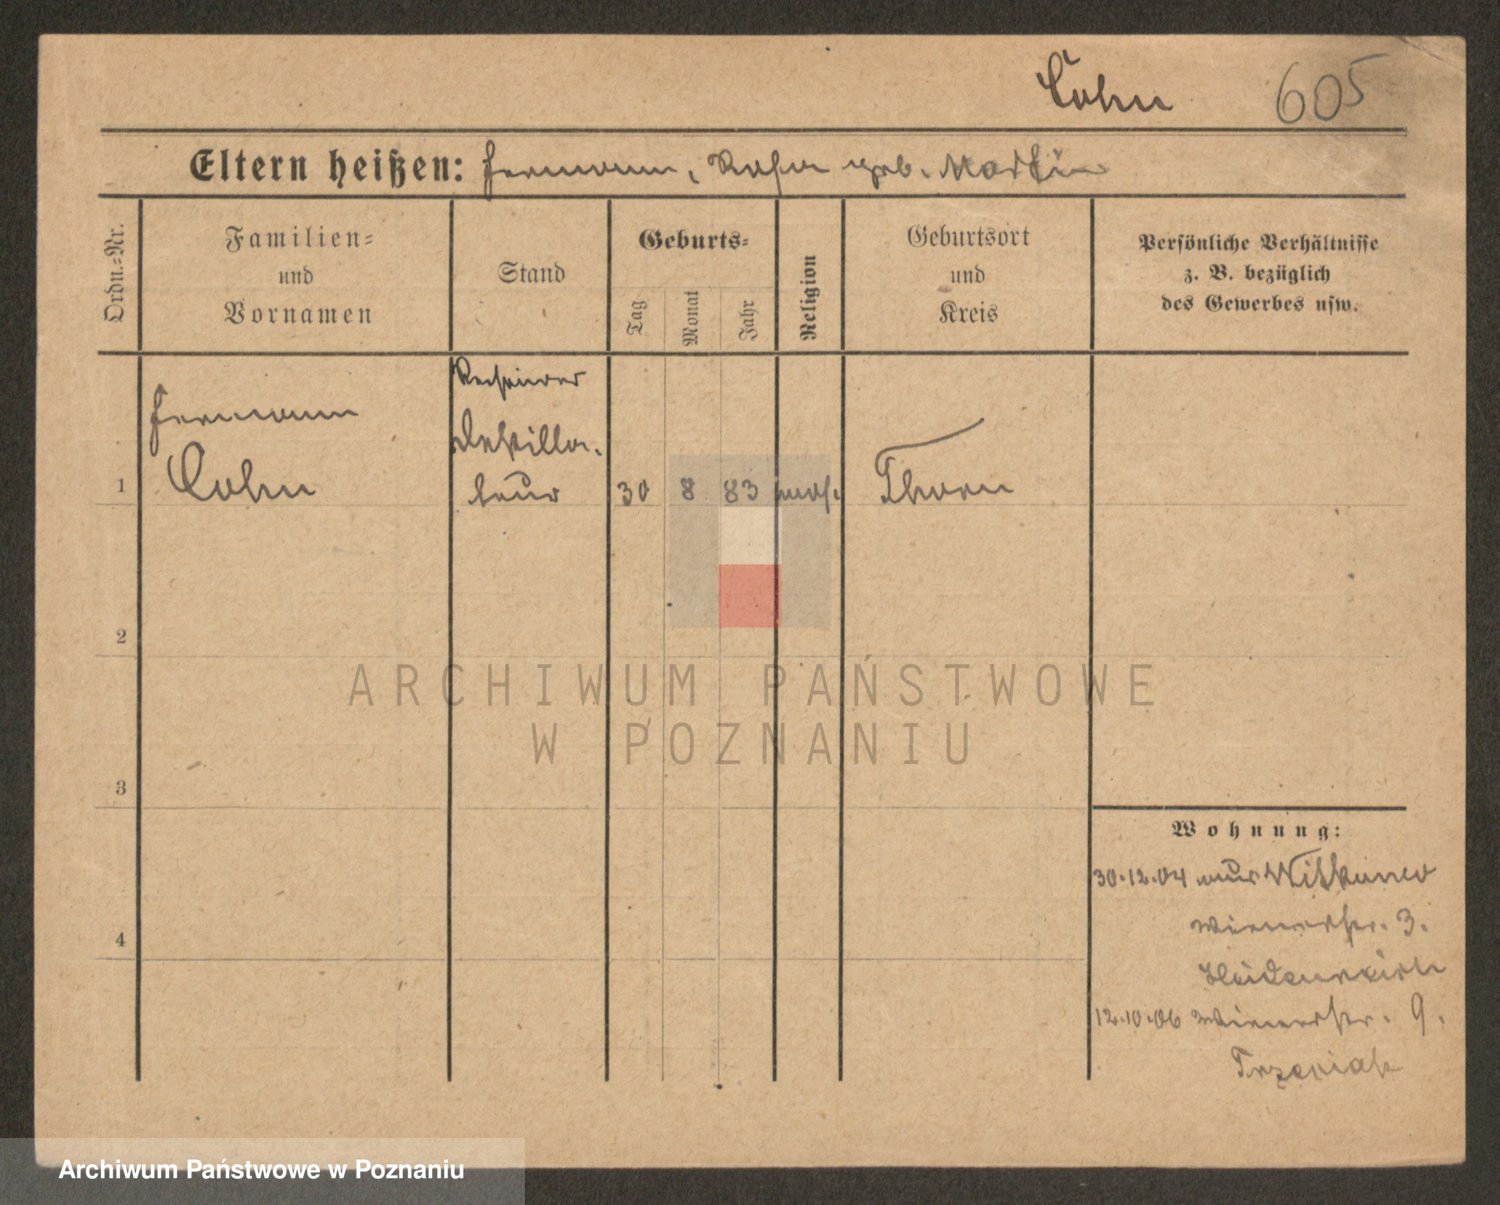 Cohn 605
Eltern heißen: Hermann, Rosa geb. Martin
Ordn.-Nr.
Familien-
und
Vornamen
Stand
Geburts-
Tag
Monat
Jahr
Religion
Geburtsort
und
Kreis
Persönliche Verhältnisse
z. B. bezüglich
des Gewerbes usw.
1
Hermann
Cohn
Destilla-
teur
30 8 83 mos.
Thorn
2
3
4
Wohnung:
30.12.04 aus Witkowo
Wienerstr. 3.
12.10.06 Wienerstr. 9.
Trzeciak
ARCHIWUM PAŃSTWOWE
W POZNANIU
Archiwum Państwowe w Poznaniu